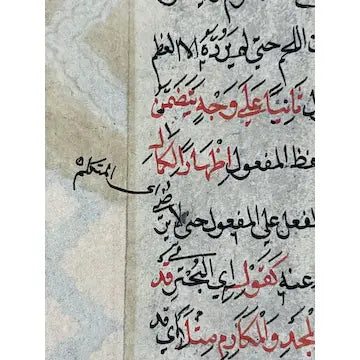 اللحم حتى لم يردّه الا العظم
ثانيا على وجه يتضمن
فظ المفعول اظهارا لكمال
المتكلم
اى
لفعل على المفعول حتى لا يرضى
عنه كقوله اي البحتري قد
لمجد والمكارم مثلا اي قد